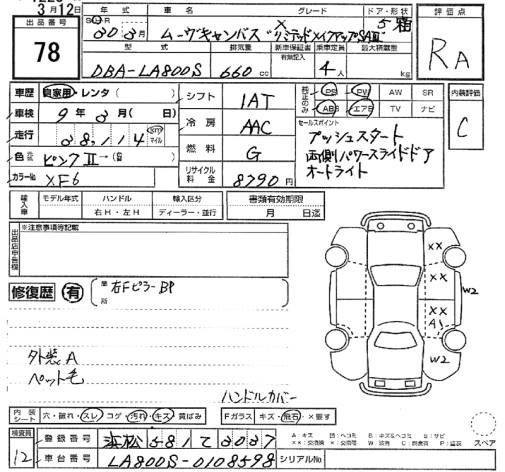 3月12日
出品番号 78
年式 車名 グレード ドア・形状
30年3月 ムーヴキャンバス X リミテッドメイクアップSAⅢ 5 箱
型式 排気量 新車保証書 有無記入 乗車定員 最大積載量
DBA-LA800S 660cc 4人 kg
評価点 RA
車歴 自家用・レンタ( )
車検 9年3月( 日)
走行 38,114 km マイル
色 ピンクⅡ→( )
カラー№ XF6
シフト 1AT
冷房 AAC
燃料 G
リサイクル料金 8790円
純正のみ PS PW AW SR
ABS エアB TV ナビ
内装評価 C
セールスポイント
プッシュスタート
両側パワースライドドア
オートライト
輸入車 モデル年式 ハンドル 輸入区分
年 右H・左H ディーラー・並行
書類有効期限
月 日迄
出品店申告欄 ※注意事項等記載
修復歴 有 箇所 右Fピラー BP
××
××
W2
××
A1
W2
外装A
ペット毛
ハンドルカバー
内装シート 穴・破れ・スレ・コゲ・汚れ・キズ・黄ばみ
Fガラス キズ・飛石・×要す
スペア
検査員 12
登録番号 浜松 581 て 3037
車台番号 LA800S-0108598
シリアル№